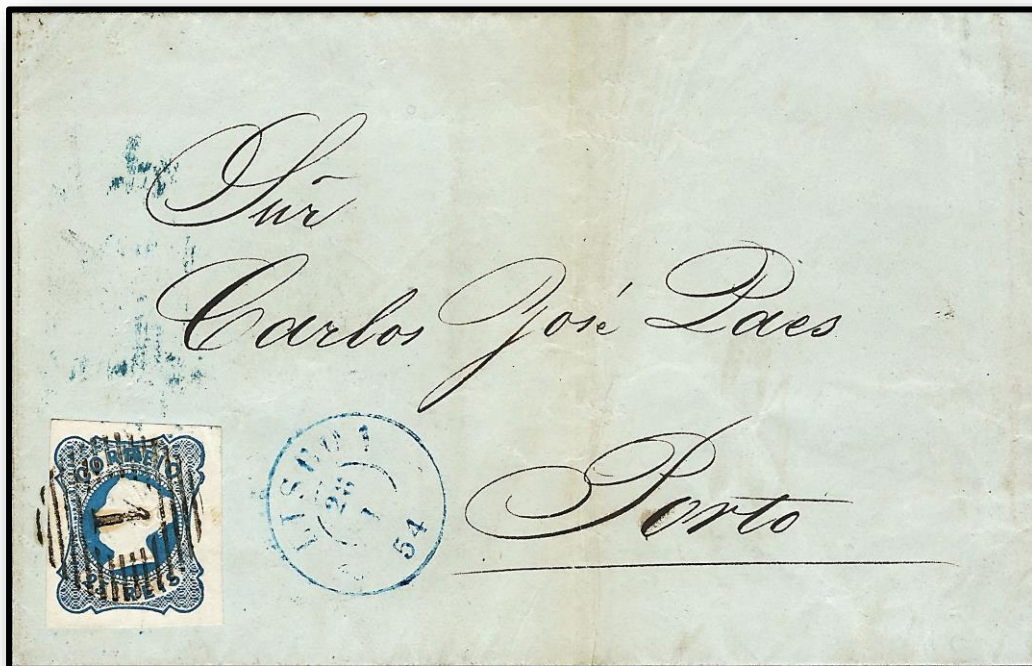 Snr̃
Carlos José Paes
Porto
CORREIO
REIS
LISBOA
28
1
54